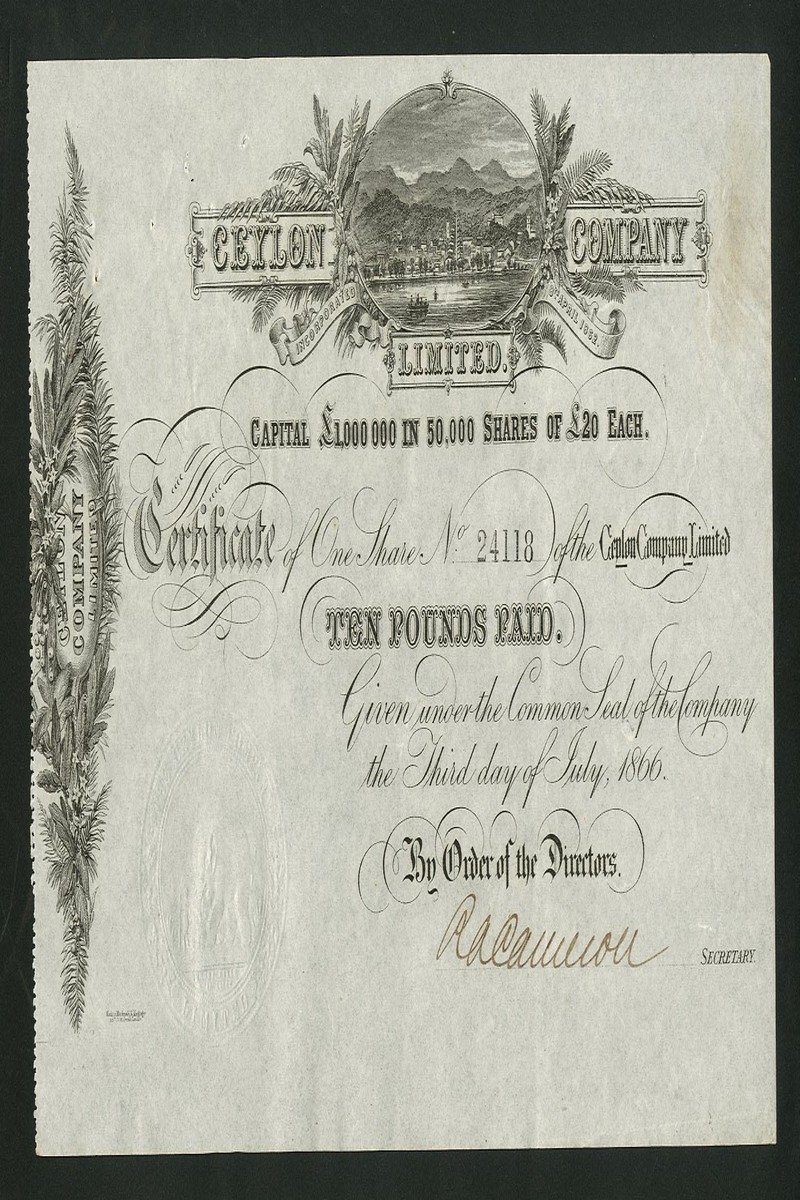 CEYLON COMPANY
INCORPORATED APRIL 1862.
LIMITED.
CAPITAL £1,000 000 IN 50,000 SHARES OF £20 EACH.
Certificate of One Share No. 24118 of the Ceylon Company Limited
TEN POUNDS PAID.
Given under the Common Seal of the Company
the Third day of July, 1866.
By Order of the Directors.
R A Cameron SECRETARY.
CEYLON
COMPANY
LIMITED